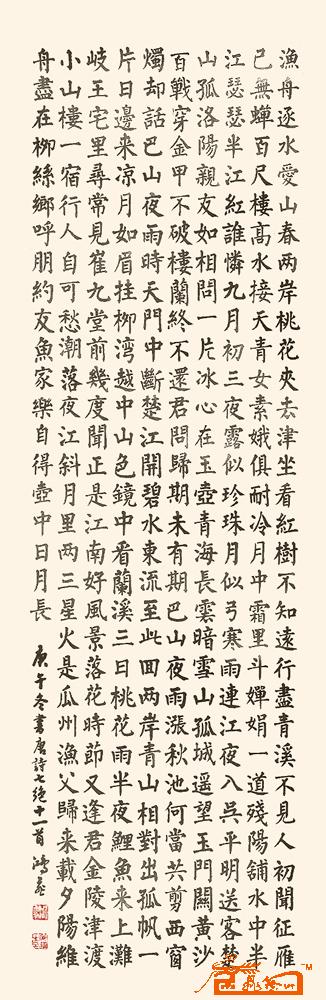 漁舟逐水愛山春两岸桃花夾去津坐看紅樹不知遠行盡青溪不見人初聞征雁
已無蟬百尺樓高水接天青女素娥俱耐冷月中霜里斗嬋娟一道殘陽舖水中半
江瑟瑟半江紅誰憐九月初三夜露似珍珠月似弓寒雨連江夜入吳平明送客楚
山孤洛陽親友如相問一片冰心在玉壺青海長雲暗雪山孤城遥望玉門關黄沙
百戰穿金甲不破樓蘭終不還君問歸期未有期巴山夜雨漲秋池何當共剪西窗
燭却話巴山夜雨時天門中斷楚江開碧水東流至此回两岸青山相對出孤帆一
片日邊来凉月如眉挂柳灣越中山色鏡中看蘭溪三日桃花雨半夜鯉魚来上灘
岐王宅里尋常見崔九堂前幾度聞正是江南好風景落花時節又逢君金陵津渡
小山樓一宿行人自可愁潮落夜江斜月里两三星火是瓜州漁父歸来載夕陽維
舟盡在柳絲鄉呼朋約友魚家樂自得壺中日月長
庚午冬書唐詩七絶十一首鴻
.COM